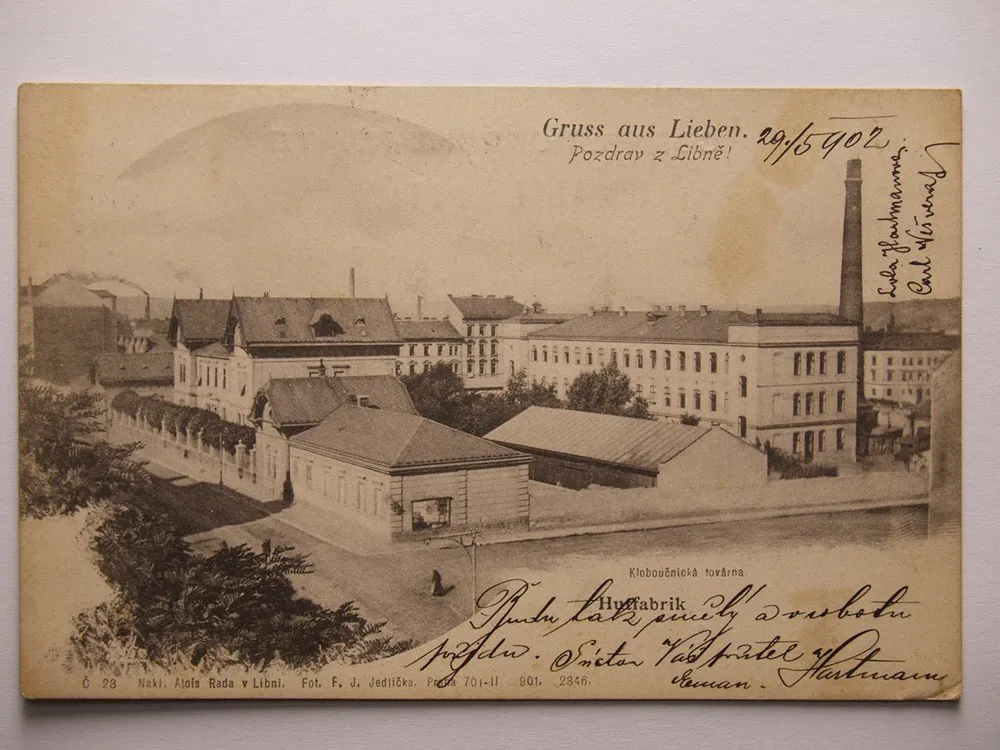 Gruss aus Lieben.
Pozdrav z Libně!
29./5 902
Lola Hartmanova,
Carl
Kloboučnická továrna
Hutfabrik
Budu tak smělý a v sobotu
přijdu. Váš přítel Hartmann
Eman.
Č 23 Nakl. Alois Rada v Libni. Fot. F. J. Jedlička. Praha 701-II 901. 2346.